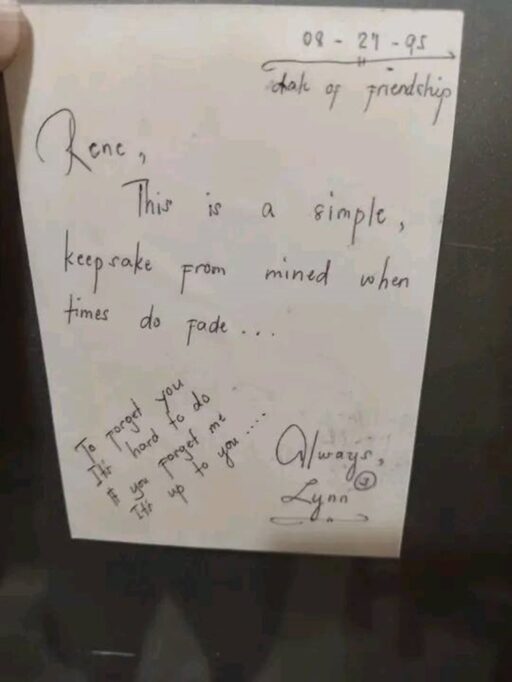 08 - 27 - 95
date of friendship
Rene,
This is a simple,
keepsake from mined when
times do fade...
To forget you
It's hard to do
If you forget me
It's up to you....
Always,
Lynn